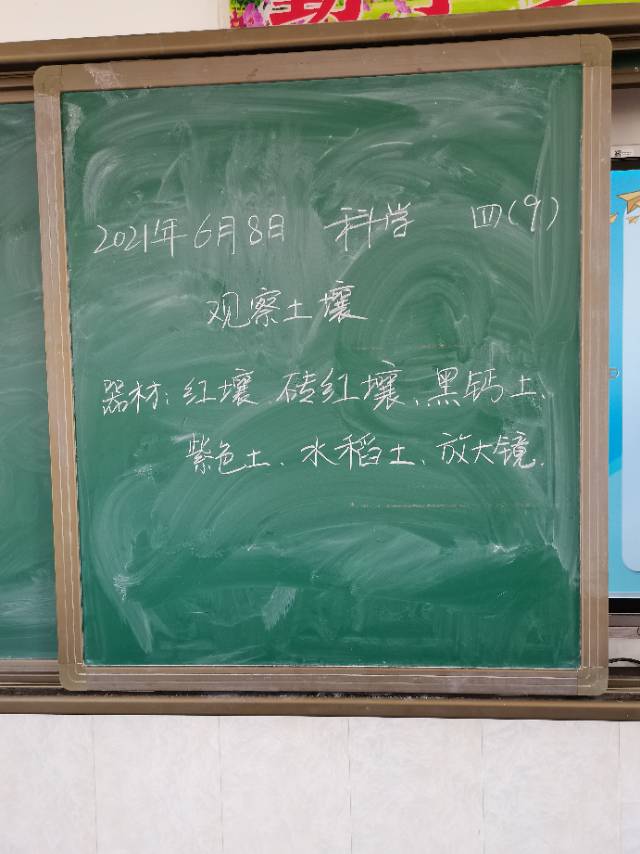 2021年6月8日 科学 四(9)
观察土壤
器材：红壤、砖红壤、黑钙土、
紫色土、水稻土、放大镜.